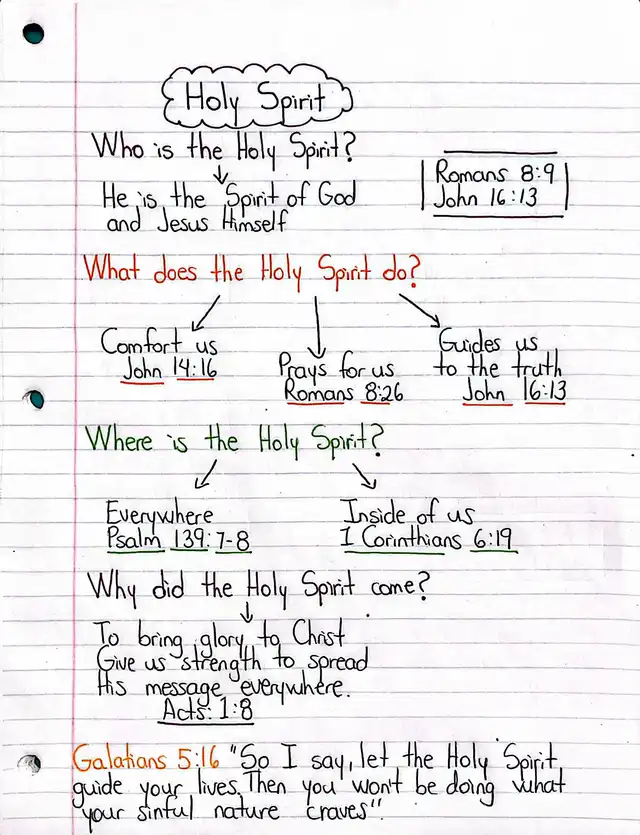 Holy Spirit
Who is the Holy Spirit?
He is the Spirit of God
and Jesus Himself
Romans 8:9
John 16:13
What does the Holy Spirit do?
Comfort us
John 14:16
Prays for us
Romans 8:26
Guides us
to the truth
John 16:13
Where is the Holy Spirit?
Everywhere
Psalm 139:7-8
Inside of us
1 Corinthians 6:19
Why did the Holy Spirit come?
To bring glory to Christ
Give us strength to spread
His message everywhere.
Acts: 1:8
Galatians 5:16 "So I say, let the Holy Spirit
guide your lives. Then you won't be doing what
your sinful nature craves".